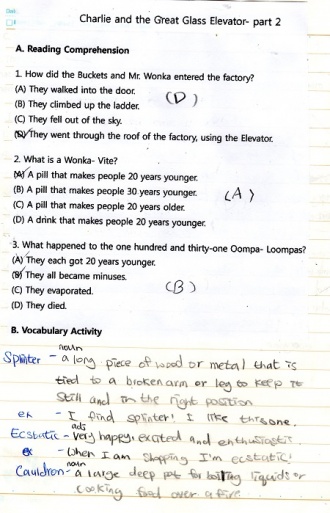 Charlie and the Great Glass Elevator- part 2
A. Reading Comprehension
1. How did the Buckets and Mr. Wonka entered the factory?
(A) They walked into the door.
(B) They climbed up the ladder.
(D)
(C) They fell out of the sky.
(D) They went through the roof of the factory, using the Elevator.
2. What is a Wonka- Vite?
(A) A pill that makes people 20 years younger.
(B) A pill that makes people 30 years younger.
(A)
(C) A pill that makes people 20 years older.
(D) A drink that makes people 20 years younger.
3. What happened to the one hundred and thirty-one Oompa- Loompas?
(A) They each got 20 years younger.
(B) They all became minuses.
(C) They evaporated.
(B)
(D) They died.
B. Vocabulary Activity
noun
Splinter - a long piece of wood or metal that is
tied to a broken arm or leg to keep it
still and in the right position
ex - I find splinter! I like this one.
adj
Ecstatic - very happy, excited and enthusiastic.
ex - When I am shopping I'm ecstatic!
noun
Cauldron - a large deep pot for boiling liquids or
cooking food over a fire.